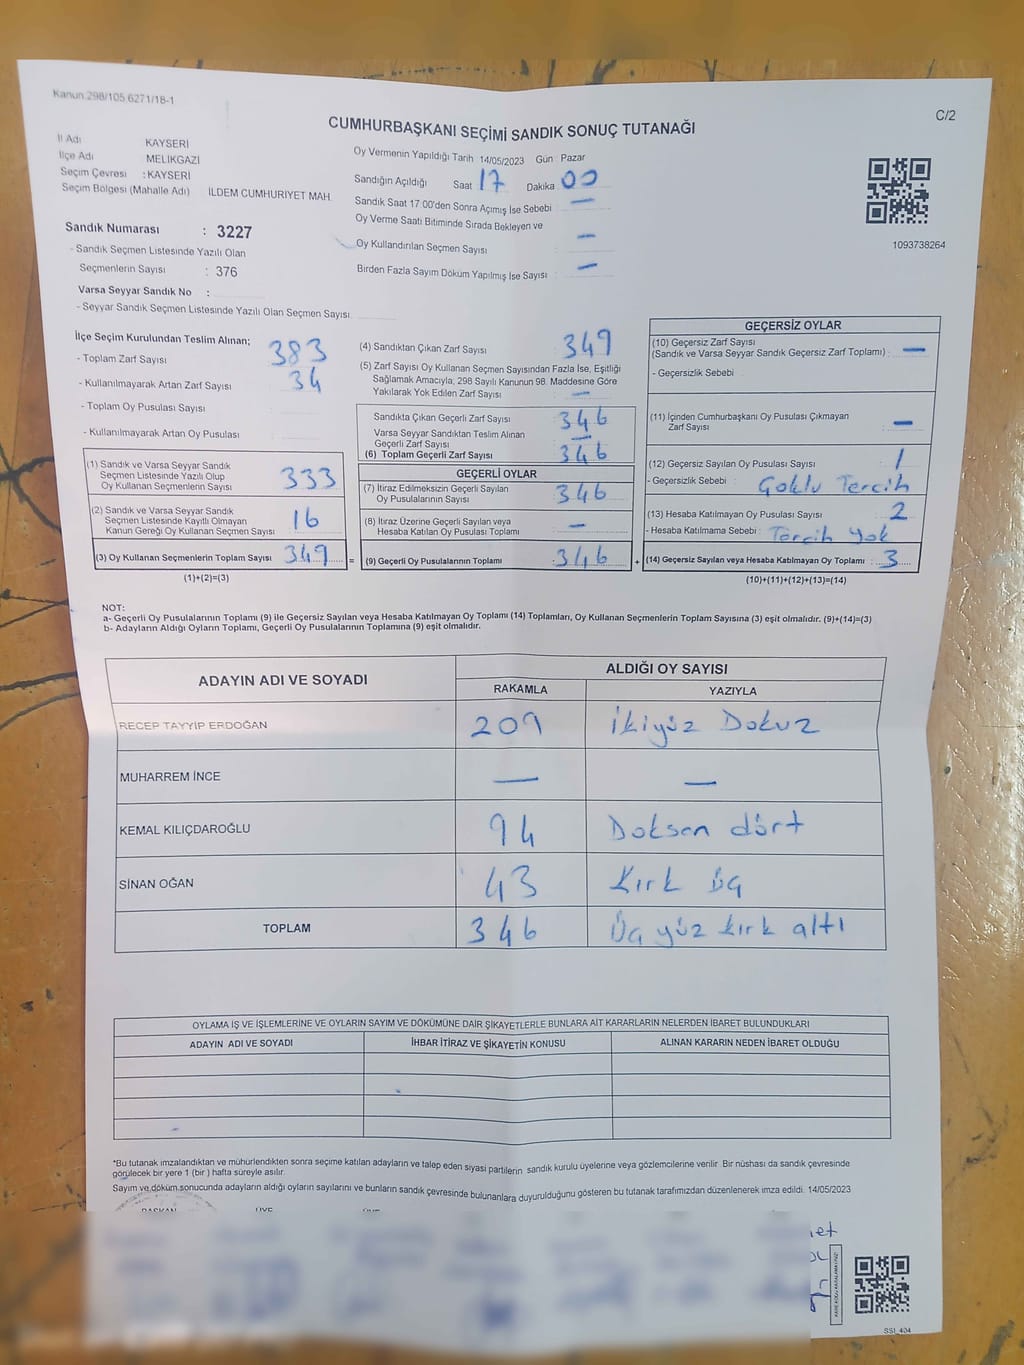 Kanun.298/105,6271/18-1
C/2
CUMHURBAŞKANI SEÇİMİ SANDIK SONUÇ TUTANAĞI
İl Adı KAYSERİ
İlçe Adı MELİKGAZİ
Seçim Çevresi : KAYSERİ
Seçim Bölgesi (Mahalle Adı) İLDEM CUMHURİYET MAH.
Oy Vermenin Yapıldığı Tarih 14/05/2023 Gün Pazar
Sandığın Açıldığı Saat 17 Dakika 00
Sandık Saat 17:00'den Sonra Açımış İse Sebebi —
Oy Verme Saati Bitiminde Sırada Bekleyen ve
Oy Kullandırılan Seçmen Sayısı —
Birden Fazla Sayım Döküm Yapılmış İse Sayısı —
1093738264
Sandık Numarası : 3227
- Sandık Seçmen Listesinde Yazılı Olan
Seçmenlerin Sayısı : 376
Varsa Seyyar Sandık No :
- Seyyar Sandık Seçmen Listesinde Yazılı Olan Seçmen Sayısı
İlçe Seçim Kurulundan Teslim Alınan;
- Toplam Zarf Sayısı 383
- Kullanılmayarak Artan Zarf Sayısı 34
- Toplam Oy Pusulası Sayısı
- Kullanılmayarak Artan Oy Pusulası
(1) Sandık ve Varsa Seyyar Sandık
Seçmen Listesinde Yazılı Olup
Oy Kullanan Seçmenlerin Sayısı 333
(2) Sandık ve Varsa Seyyar Sandık
Seçmen Listesinde Kayıtlı Olmayan
Kanun Gereği Oy Kullanan Seçmen Sayısı 16
(3) Oy Kullanan Seçmenlerin Toplam Sayısı 349 =
(1)+(2)=(3)
(4) Sandıktan Çıkan Zarf Sayısı 349
(5) Zarf Sayısı Oy Kullanan Seçmen Sayısından Fazla İse, Eşitliği
Sağlamak Amacıyla, 298 Sayılı Kanunun 98. Maddesine Göre
Yakılarak Yok Edilen Zarf Sayısı —
Sandıkta Çıkan Geçerli Zarf Sayısı 346
Varsa Seyyar Sandıktan Teslim Alınan
Geçerli Zarf Sayısı —
(6) Toplam Geçerli Zarf Sayısı 346
GEÇERLİ OYLAR
(7) İtiraz Edilmeksizin Geçerli Sayılan
Oy Pusulalarının Sayısı 346
(8) İtiraz Üzerine Geçerli Sayılan veya
Hesaba Katılan Oy Pusulası Toplamı —
(9) Geçerli Oy Pusulalarının Toplamı 346 +
GEÇERSİZ OYLAR
(10) Geçersiz Zarf Sayısı
(Sandık ve Varsa Seyyar Sandık Geçersiz Zarf Toplamı) : —
- Geçersizlik Sebebi :
(11) İçinden Cumhurbaşkanı Oy Pusulası Çıkmayan
Zarf Sayısı : —
(12) Geçersiz Sayılan Oy Pusulası Sayısı : 1
- Geçersizlik Sebebi : Çoklu Tercih
(13) Hesaba Katılmayan Oy Pusulası Sayısı : 2
- Hesaba Katılmama Sebebi : Tercih Yok
(14) Geçersiz Sayılan veya Hesaba Katılmayan Oy Toplamı : 3
(10)+(11)+(12)+(13)=(14)
NOT:
a- Geçerli Oy Pusulalarının Toplamı (9) ile Geçersiz Sayılan veya Hesaba Katılmayan Oy Toplamı (14) Toplamları, Oy Kullanan Seçmenlerin Toplam Sayısına (3) eşit olmalıdır. (9)+(14)=(3)
b- Adayların Aldığı Oyların Toplamı, Geçerli Oy Pusulalarının Toplamına (9) eşit olmalıdır.
ADAYIN ADI VE SOYADI
ALDIĞI OY SAYISI
RAKAMLA YAZIYLA
RECEP TAYYİP ERDOĞAN 209 İkiyüz Dokuz
MUHARREM İNCE — —
KEMAL KILIÇDAROĞLU 94 Doksen dört
SİNAN OĞAN 43 Kırk üç
TOPLAM 346 Üç yüz kırk altı
OYLAMA İŞ VE İŞLEMLERİNE VE OYLARIN SAYIM VE DÖKÜMÜNE DAİR ŞİKAYETLERLE BUNLARA AİT KARARLARIN NELERDEN İBARET BULUNDUKLARI
ADAYIN ADI VE SOYADI İHBAR İTİRAZ VE ŞİKAYETİN KONUSU ALINAN KARARIN NEDEN İBARET OLDUĞU
*Bu tutanak imzalandıktan ve mühürlendikten sonra seçime katılan adayların ve talep eden siyasi partilerin sandık kurulu üyelerine veya gözlemcilerine verilir. Bir nüshası da sandık çevresinde
görülecek bir yere 1 (bir) hafta süreyle asılır.
Sayım ve döküm sonucunda adayların aldığı oyların sayılarını ve bunların sandık çevresinde bulunanlara duyurulduğunu gösteren bu tutanak tarafımızdan düzenlenerek imza edildi. 14/05/2023
BAŞKAN ÜYE ÜYE
SSI_404